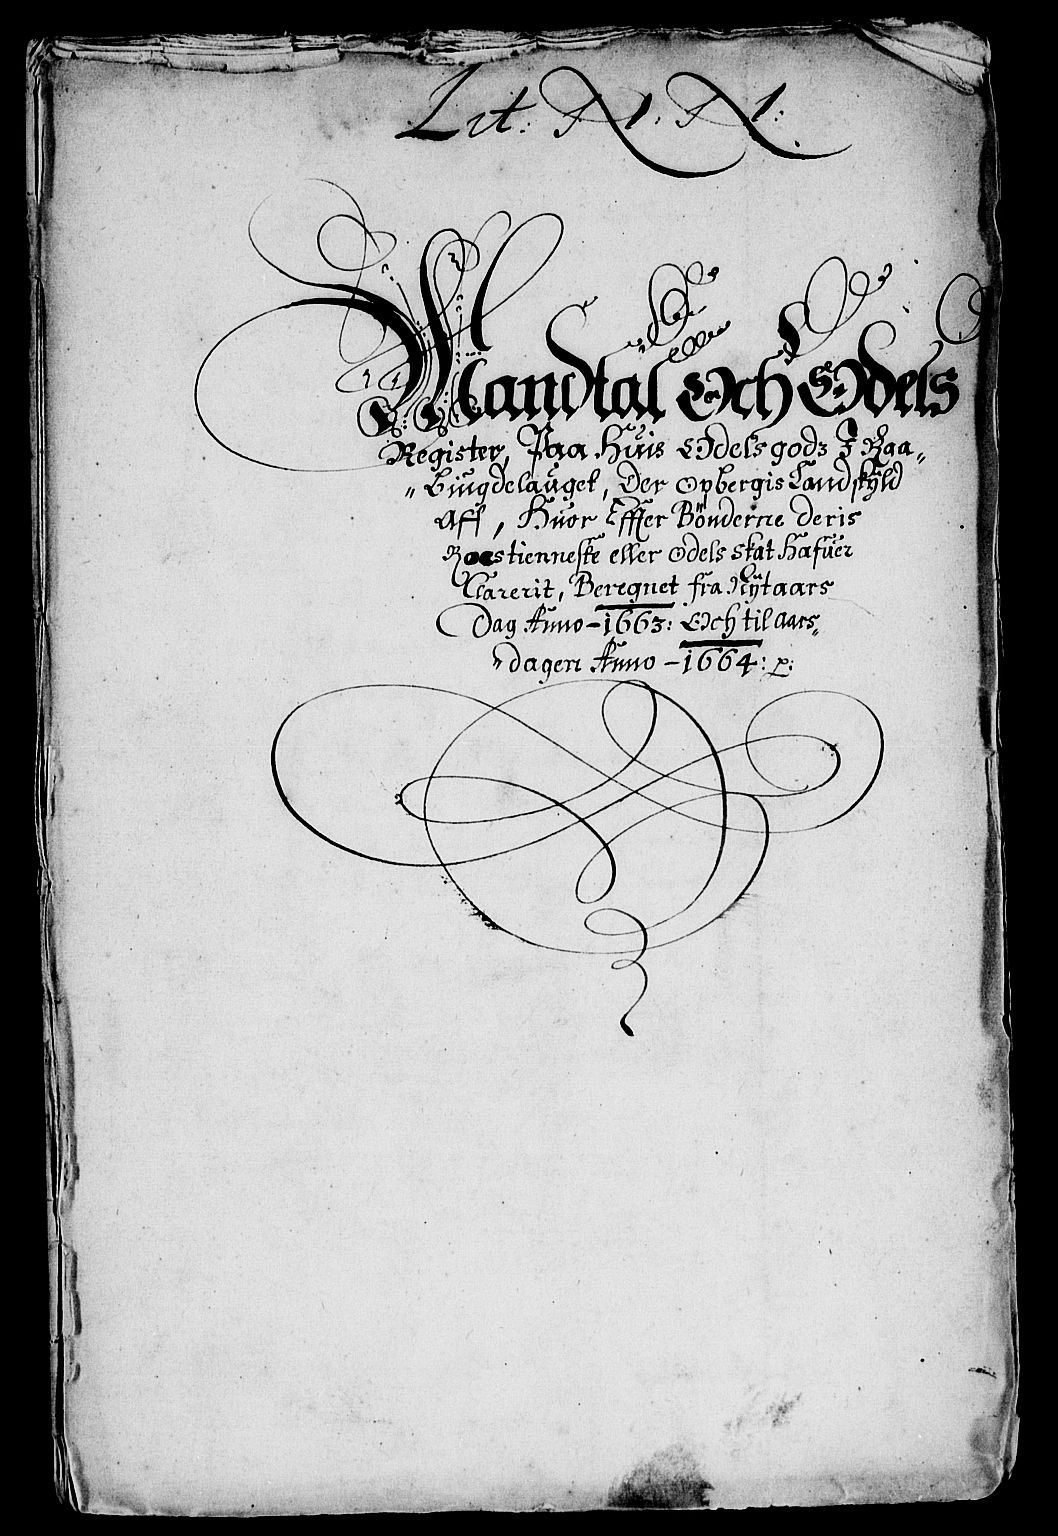 Lit: N. N:
Mandtal Och Odels
Register, Paa Huis Odels godz I Raa„
„Bÿugdelauget, Der opbergis Landskÿld
Aff, Huor Effter Bönderne deris
Roestienneske eller Odels skat Hafuer
Clarerit, Beregnet fra Nÿtaars
Dag Anno - 1663: Och til aars„
„dagen Anno - 1664: